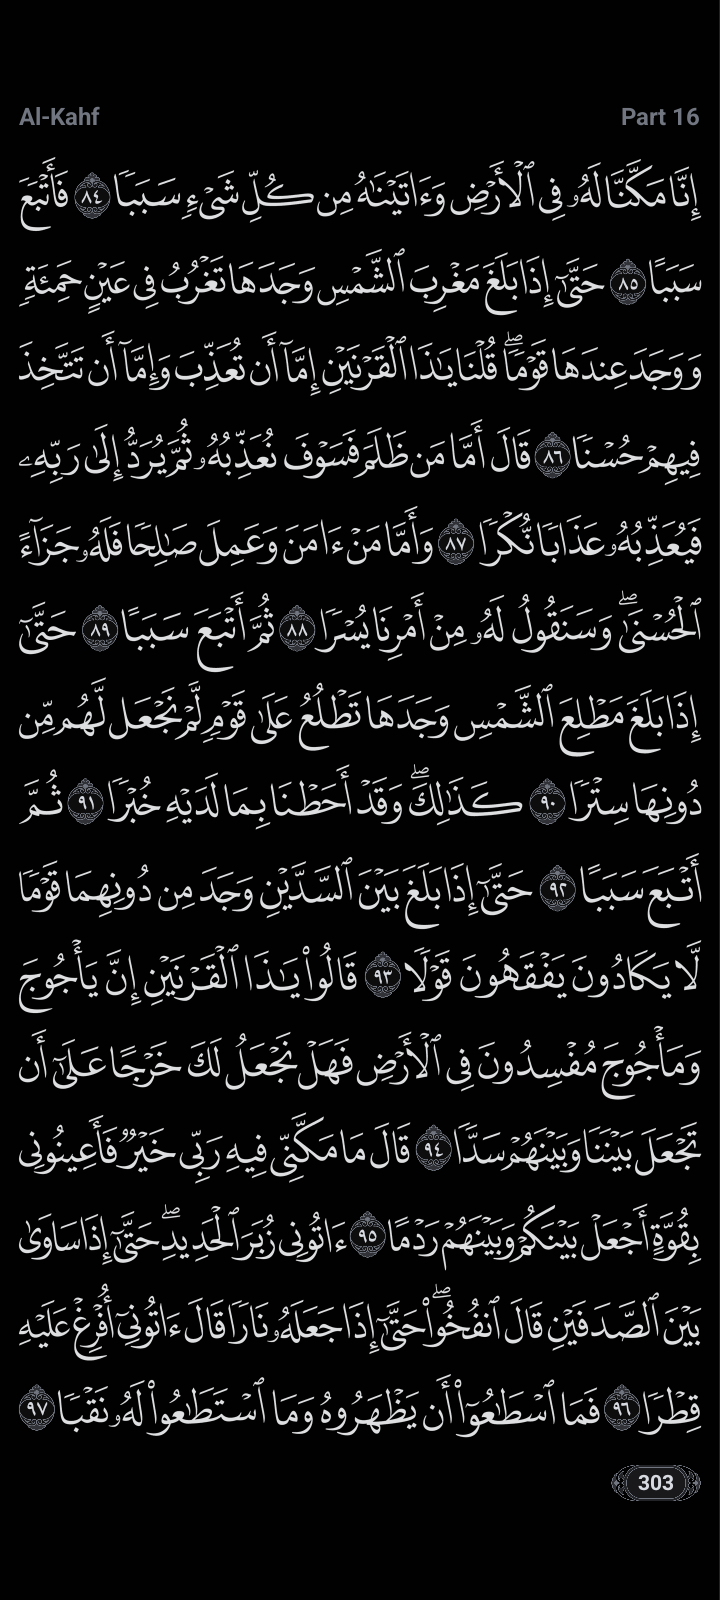 Al-Kahf Part 16
إِنَّا مَكَّنَّا لَهُۥ فِى ٱلْأَرْضِ وَءَاتَيْنَٰهُ مِن كُلِّ شَىْءٍ سَبَبًا ٨٤ فَأَتْبَعَ
سَبَبًا ٨٥ حَتَّىٰٓ إِذَا بَلَغَ مَغْرِبَ ٱلشَّمْسِ وَجَدَهَا تَغْرُبُ فِى عَيْنٍ حَمِئَةٍ
وَوَجَدَ عِندَهَا قَوْمًا ۖ قُلْنَا يَٰذَا ٱلْقَرْنَيْنِ إِمَّآ أَن تُعَذِّبَ وَإِمَّآ أَن تَتَّخِذَ
فِيهِمْ حُسْنًا ٨٦ قَالَ أَمَّا مَن ظَلَمَ فَسَوْفَ نُعَذِّبُهُۥ ثُمَّ يُرَدُّ إِلَىٰ رَبِّهِۦ
فَيُعَذِّبُهُۥ عَذَابًا نُّكْرًا ٨٧ وَأَمَّا مَنْ ءَامَنَ وَعَمِلَ صَٰلِحًا فَلَهُۥ جَزَآءً
ٱلْحُسْنَىٰ ۖ وَسَنَقُولُ لَهُۥ مِنْ أَمْرِنَا يُسْرًا ٨٨ ثُمَّ أَتْبَعَ سَبَبًا ٨٩ حَتَّىٰٓ
إِذَا بَلَغَ مَطْلِعَ ٱلشَّمْسِ وَجَدَهَا تَطْلُعُ عَلَىٰ قَوْمٍ لَّمْ نَجْعَل لَّهُم مِّن
دُونِهَا سِتْرًا ٩٠ كَذَٰلِكَ ۖ وَقَدْ أَحَطْنَا بِمَا لَدَيْهِ خُبْرًا ٩١ ثُمَّ
أَتْبَعَ سَبَبًا ٩٢ حَتَّىٰٓ إِذَا بَلَغَ بَيْنَ ٱلسَّدَّيْنِ وَجَدَ مِن دُونِهِمَا قَوْمًا
لَّا يَكَادُونَ يَفْقَهُونَ قَوْلًا ٩٣ قَالُوا۟ يَٰذَا ٱلْقَرْنَيْنِ إِنَّ يَأْجُوجَ
وَمَأْجُوجَ مُفْسِدُونَ فِى ٱلْأَرْضِ فَهَلْ نَجْعَلُ لَكَ خَرْجًا عَلَىٰٓ أَن
تَجْعَلَ بَيْنَنَا وَبَيْنَهُمْ سَدًّا ٩٤ قَالَ مَا مَكَّنِّى فِيهِ رَبِّى خَيْرٌ فَأَعِينُونِى
بِقُوَّةٍ أَجْعَلْ بَيْنَكُمْ وَبَيْنَهُمْ رَدْمًا ٩٥ ءَاتُونِى زُبَرَ ٱلْحَدِيدِ ۖ حَتَّىٰٓ إِذَا سَاوَىٰ
بَيْنَ ٱلصَّدَفَيْنِ قَالَ ٱنفُخُوا۟ ۖ حَتَّىٰٓ إِذَا جَعَلَهُۥ نَارًا قَالَ ءَاتُونِىٓ أُفْرِغْ عَلَيْهِ
قِطْرًا ٩٦ فَمَا ٱسْطَٰعُوٓا۟ أَن يَظْهَرُوهُ وَمَا ٱسْتَطَٰعُوا۟ لَهُۥ نَقْبًا ٩٧
303